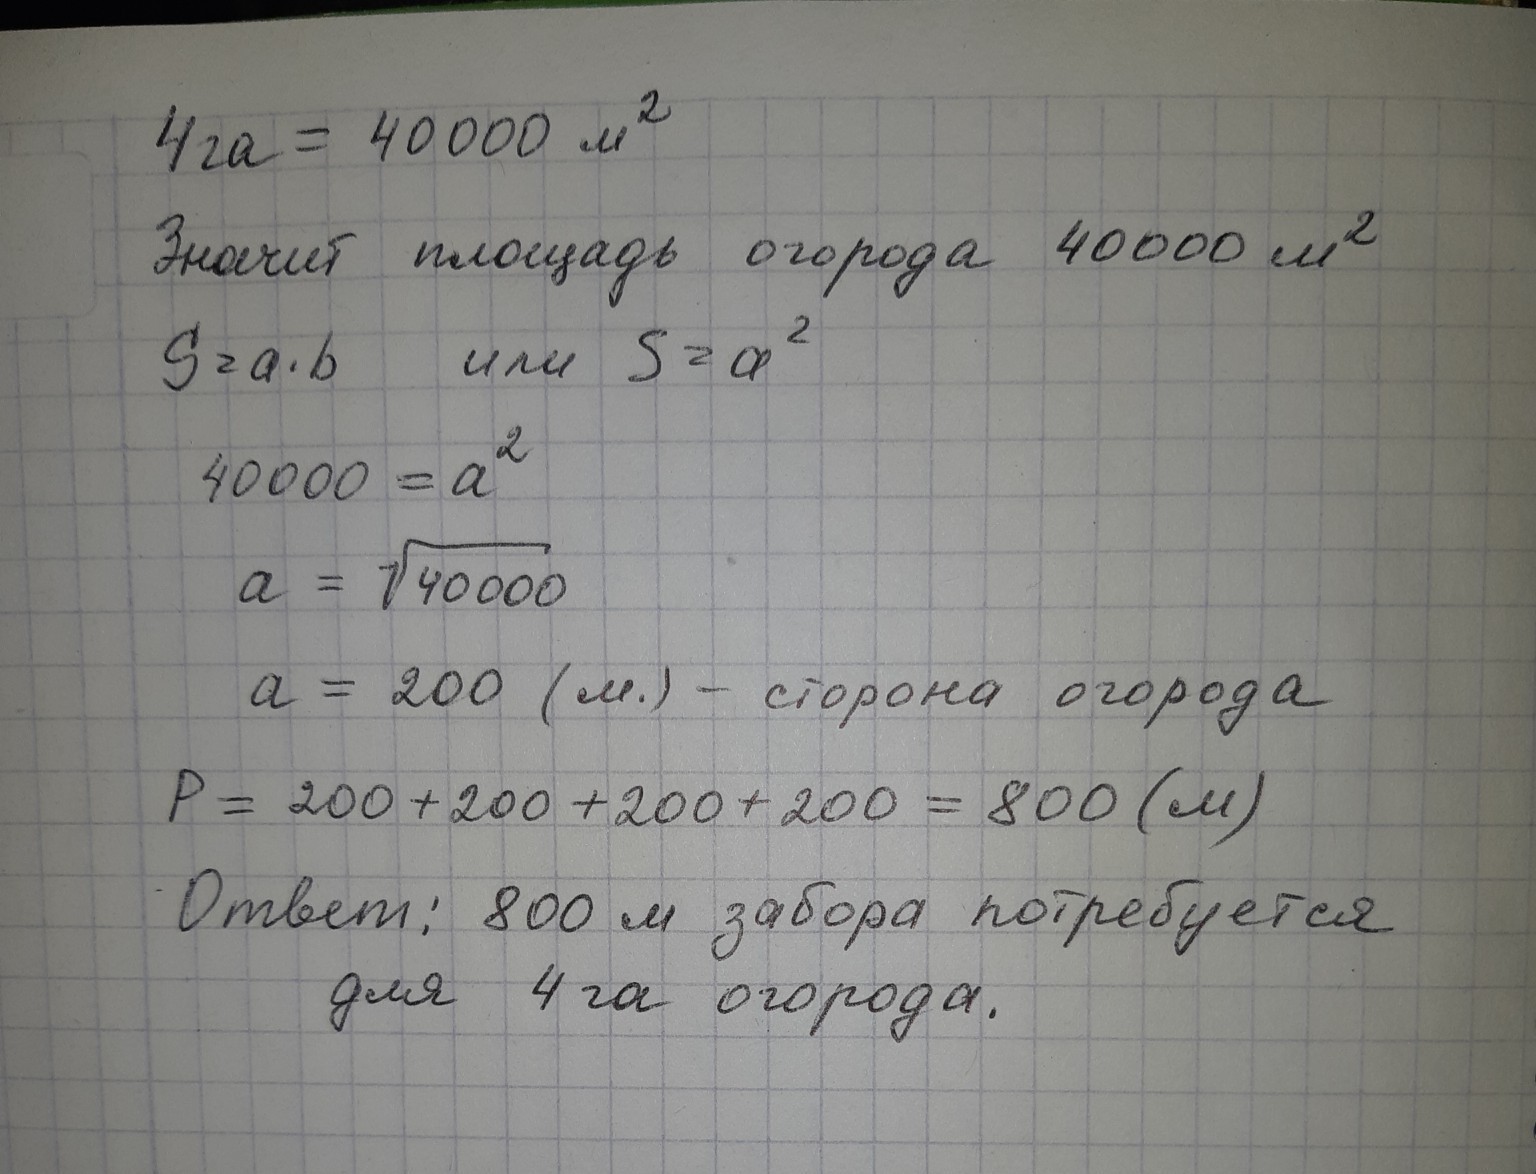 4 га = 40000 м²
Значит площадь огорода 40000 м²
S = a · b или S = a²
40000 = a²
a = √40000
a = 200 (м.) – сторона огорода
P = 200 + 200 + 200 + 200 = 800 (м)
Ответ: 800 м забора потребуется
для 4 га огорода.